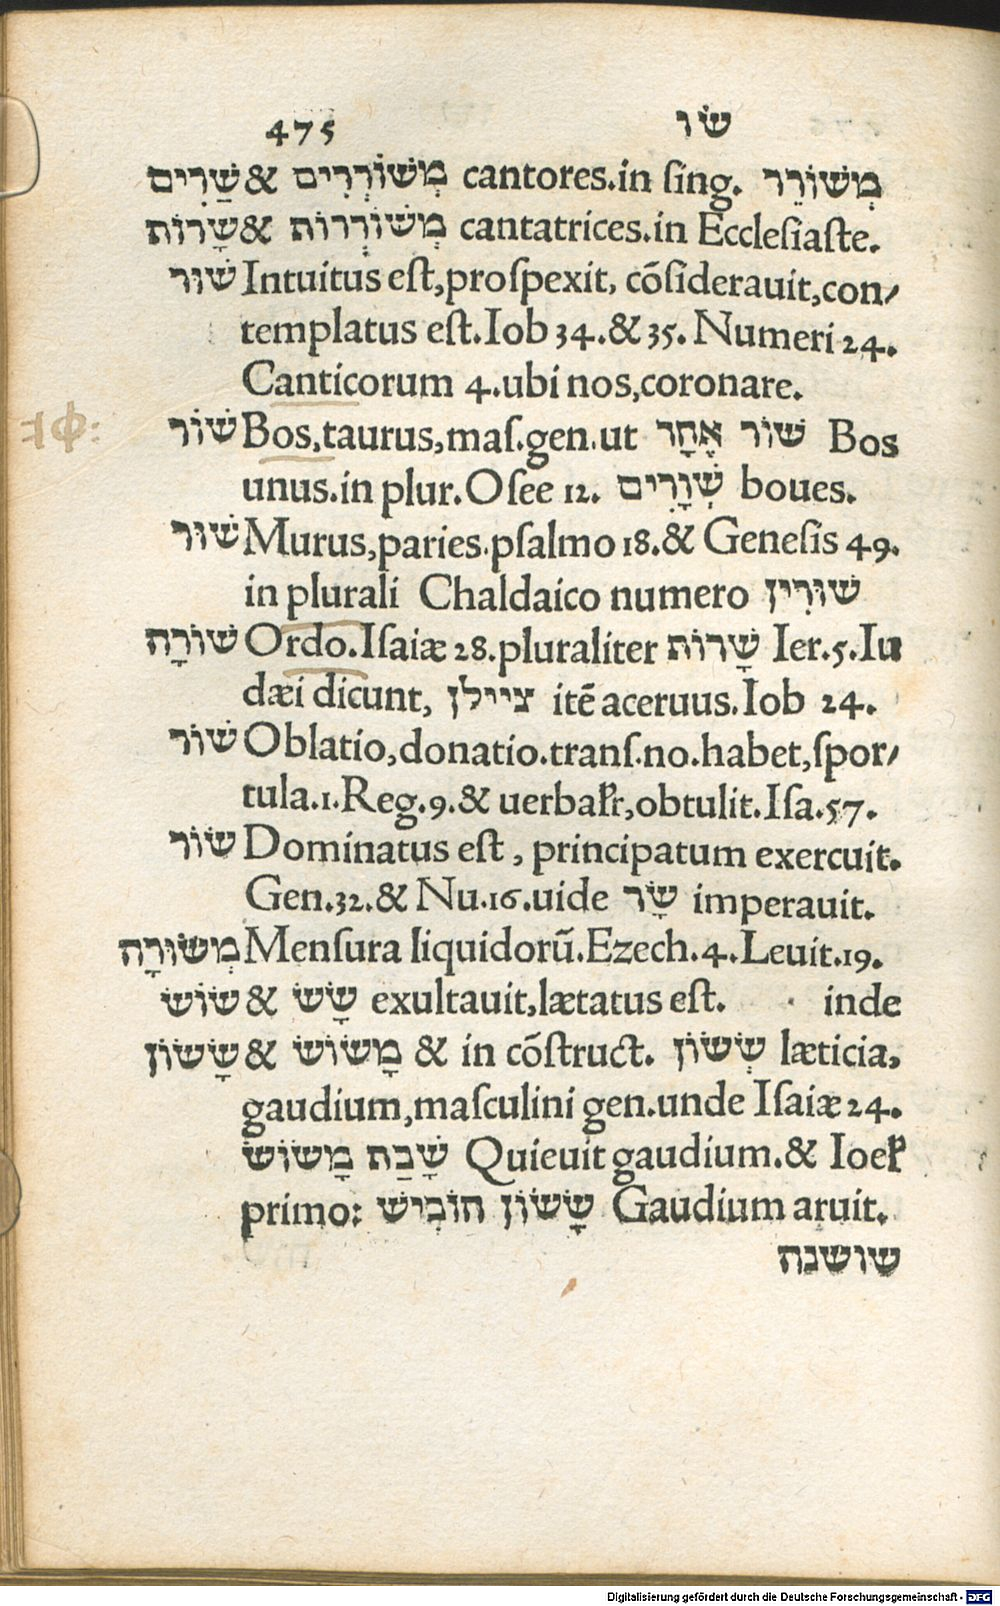 475 שׂו
שַׁרִים & מְשׁוֹרְרִים cantores.in ſing. מְשׁוֹרֵר
שָׁרוֹת & מְשׁוֹרְרוֹת cantatrices.in Eccleſiaſte.
שׁוּר Intuitus eſt,proſpexit, cõſiderauit,con/
templatus eſt.Iob 34.& 35. Numeri 24.
Canticorum 4.ubi nos,coronare.
שׁוֹר Bos,taurus,maſ.gen.ut שׁוֹר אֶחָד Bos
unus.in plur.Oſee 12. שְׁוָרִים boues.
שׁוּר Murus,paries.pſalmo 18.& Geneſis 49.
in plurali Chaldaico numero שׁוּרִין
שׁוֹרָה Ordo.Iſaiæ 28.pluraliter שָׁרוֹת Ier.5.Iu
dæi dicunt, ציילן itẽ aceruus.Iob 24.
שׁוֹר Oblatio,donatio.tranſ.no.habet,ſpor/
tula.1.Reg.9.& uerbaꝉr,obtulit.Iſa.57.
שׂוֹר Dominatus eſt, principatum exercuit.
Gen.32.& Nu.16.uide שָׂר imperauit.
מְשׂוּרָה Menſura liquidorũ.Ezech.4.Leuit.19.
שׂוֹשׂ & שָׂשׂ exultauit,lætatus eſt. inde
שָׂשׂוֹן & מָשׂוֹשׂ & in cõſtruct. שְׂשׂוֹן læticia,
gaudium,maſculini gen.unde Iſaiæ 24.
שָׁבַת מָשׂוֹשׂ Quieuit gaudium.& Ioeꝉ
primo: הוֹבִישׁ שָׂשׂוֹן Gaudium aruit.
שושנה